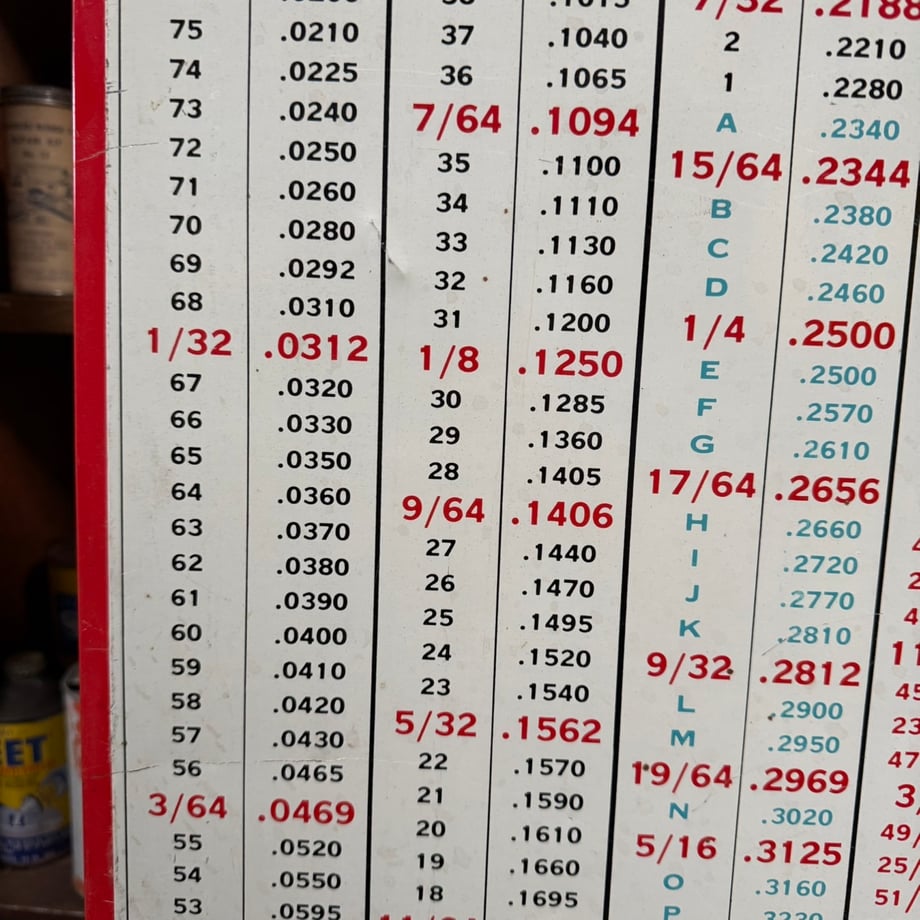 75 .0210
74 .0225
73 .0240
72 .0250
71 .0260
70 .0280
69 .0292
68 .0310
1/32 .0312
67 .0320
66 .0330
65 .0350
64 .0360
63 .0370
62 .0380
61 .0390
60 .0400
59 .0410
58 .0420
57 .0430
56 .0465
3/64 .0469
55 .0520
54 .0550
53 .0595
37 .1040
36 .1065
7/64 .1094
35 .1100
34 .1110
33 .1130
32 .1160
31 .1200
1/8 .1250
30 .1285
29 .1360
28 .1405
9/64 .1406
27 .1440
26 .1470
25 .1495
24 .1520
23 .1540
5/32 .1562
22 .1570
21 .1590
20 .1610
19 .1660
18 .1695
7/32 .2188
2 .2210
1 .2280
A .2340
15/64 .2344
B .2380
C .2420
D .2460
1/4 .2500
E .2500
F .2570
G .2610
17/64 .2656
H .2660
I .2720
J .2770
K .2810
9/32 .2812
L .2900
M .2950
19/64 .2969
N .3020
5/16 .3125
O .3160
P
49/
25/
51/
EET